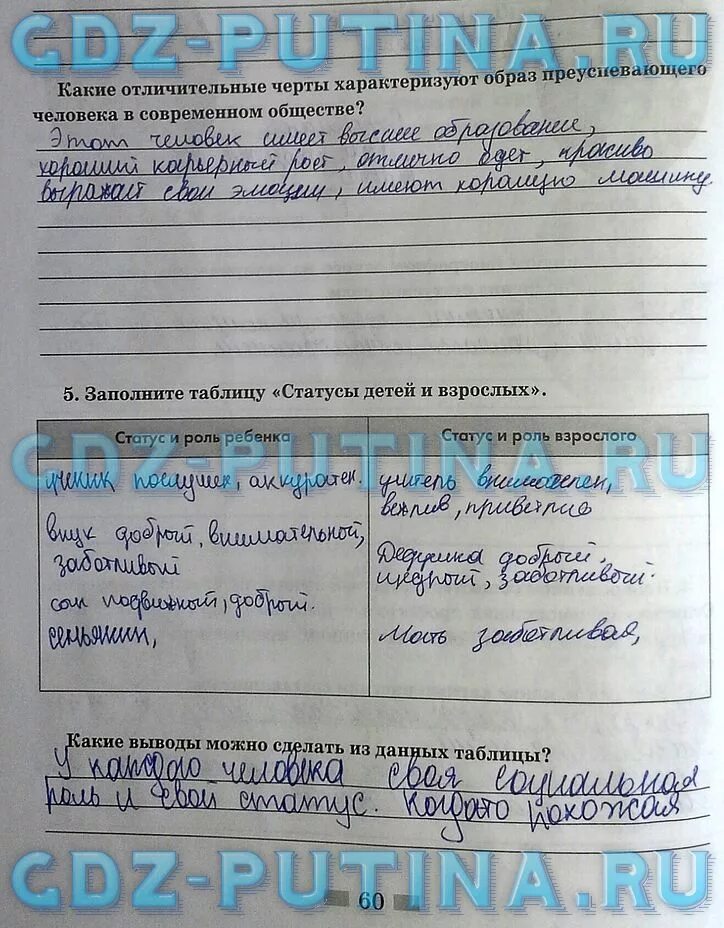 GDZ-PUTINA.RU
Какие отличительные черты характеризуют образ преуспевающего
человека в современном обществе?
Этот человек имеет высшее образование,
хороший карьерный рост, отлично одет, красиво
выражает свои эмоции, имеют хорошую машину.
5. Заполните таблицу «Статусы детей и взрослых».
Статус и роль ребенка
Статус и роль взрослого
GDZ-PUTINA.RU
ученик послушен, аккуратен.
учитель внимателен,
вежлив, приветлив
внук добрый, внимательный,
заботливый
Дедушка добрый,
щедрый, заботливый.
сын подвижный, добрый.
семьянин,
Мать заботливая,
Какие выводы можно сделать из данных таблицы?
У каждого человека своя социальная
роль и свой статус. Когдато похожая
GDZ-PUTINA.RU
60